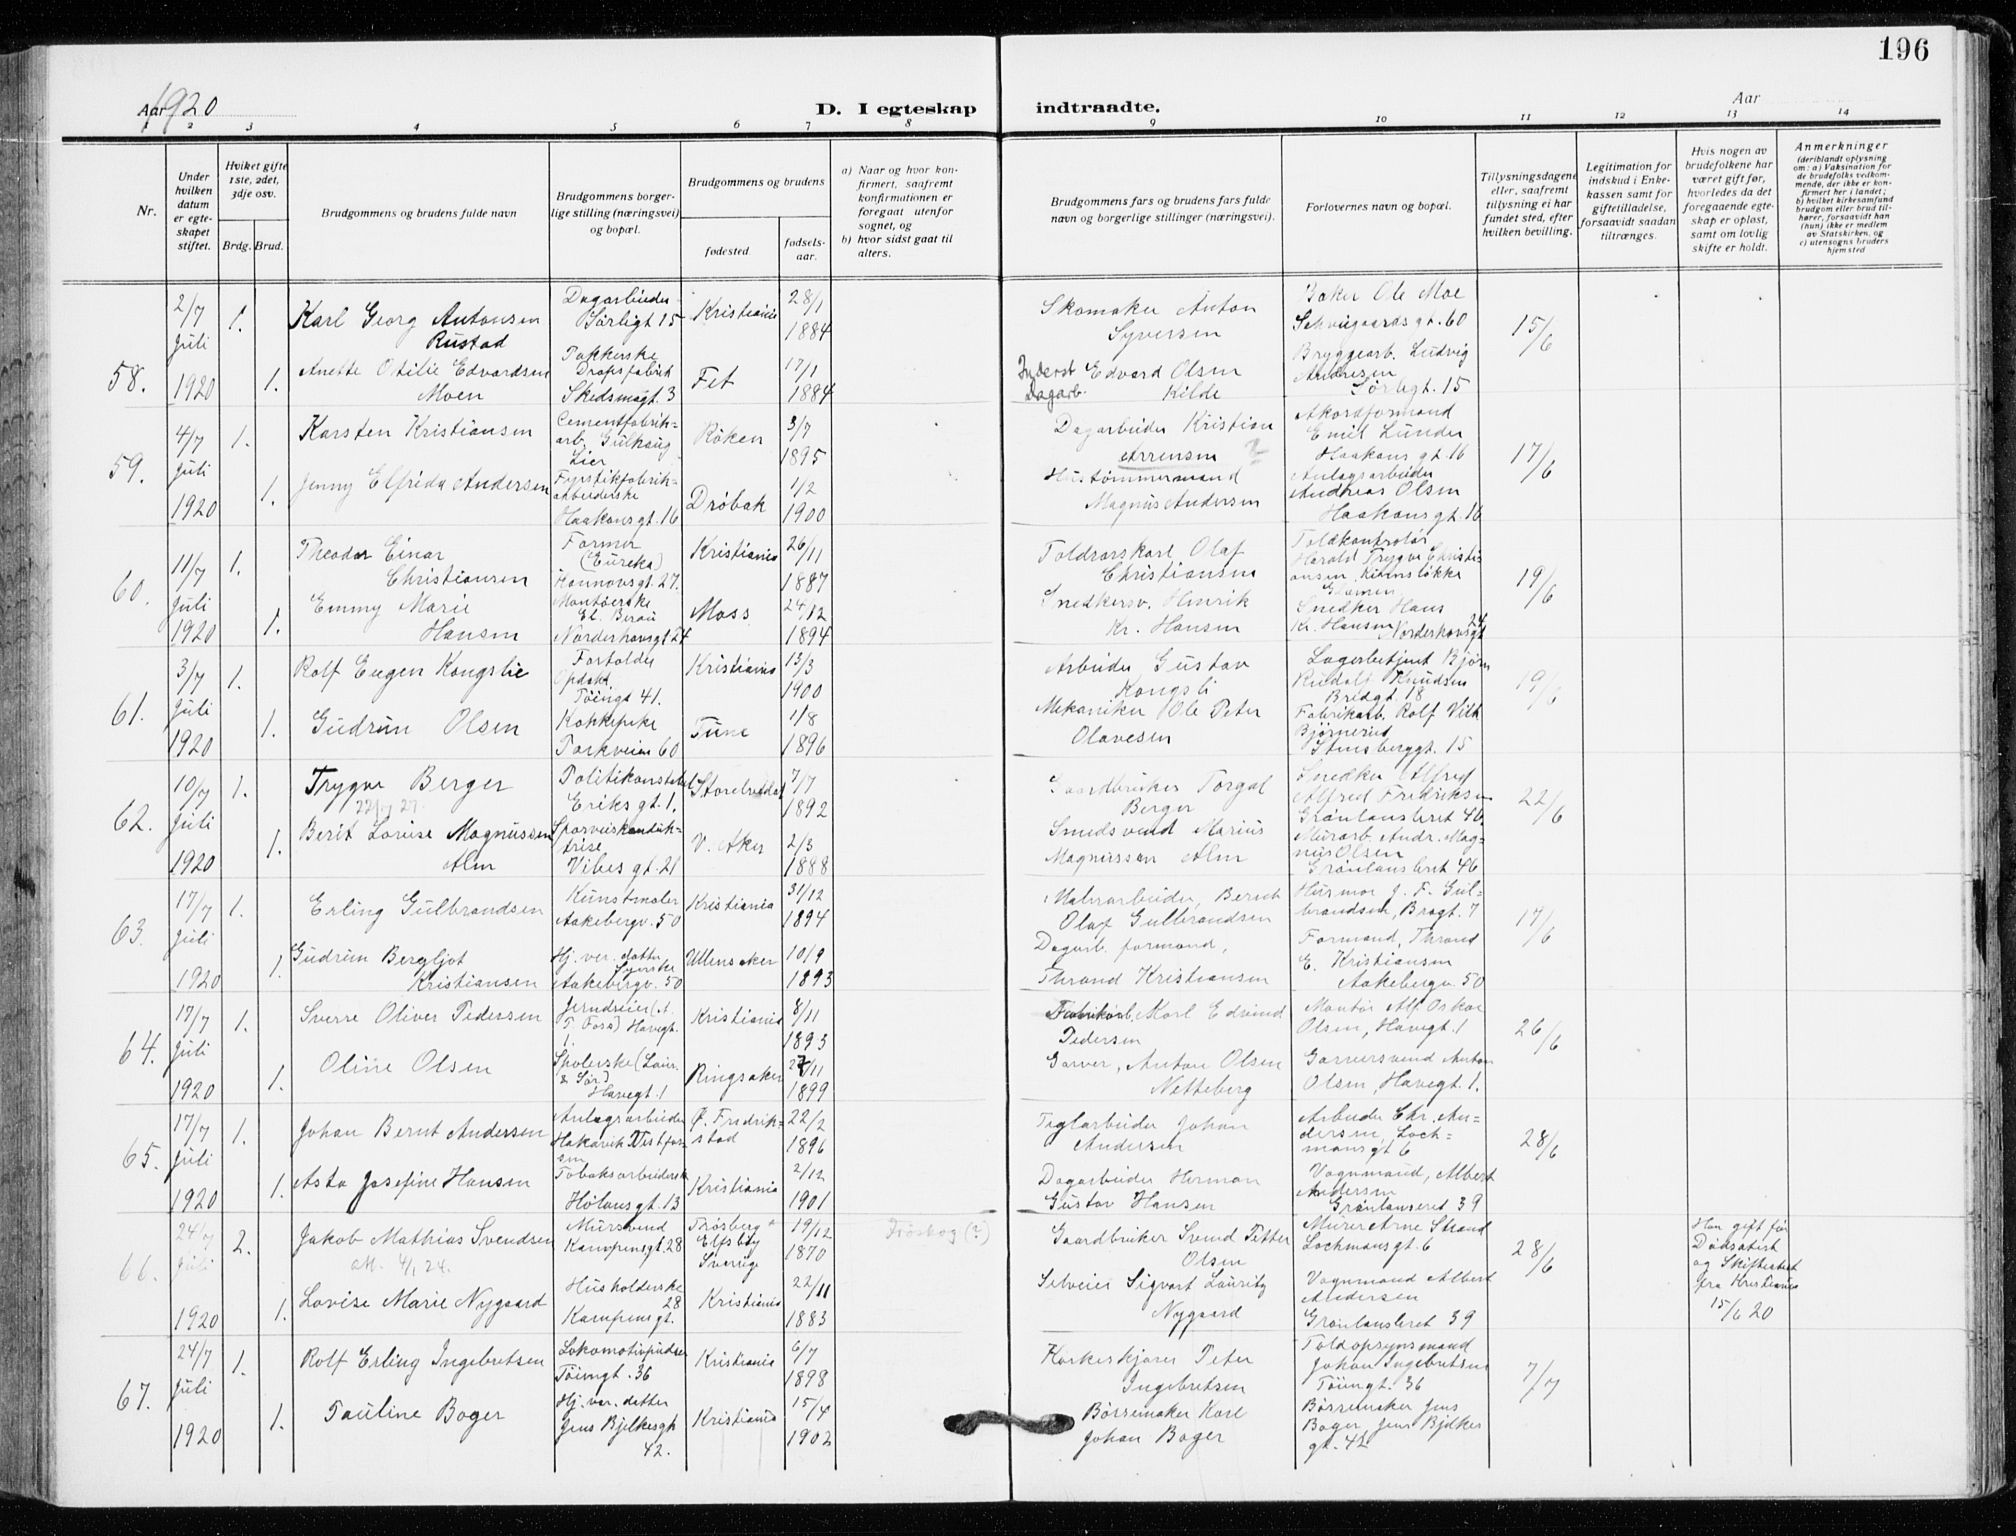 196
Aar 1920
D. I egteskap indtraadte.
Aar
1 2 3 4 5 6 7 8 9 10 11 12 13 14
Nr.
Under hvilken datum er egteskapet stiftet.
Hviket gifte 1ste, 2det, 3dje osv.
Brdg. Brud.
Brudgommens og brudens fulde navn
Brudgommens borgerlige stilling (næringsvei) og bopæl.
Brudgommens og brudens
fødested.
fødselsaar.
a) Naar og hvor konfirmert, saafremt konfirmationen er foregaat utenfor sognet, og
b) hvor sidst gaat til alters.
Brudgommens fars og brudens fars fulde navn og borgerlige stillinger (næringsvei).
Forlovernes navn og bopæl.
Tillysningsdagene eller, saafremt tillysning ei har fundet sted, efter hvilken bevilling.
Legitimation for indskud i Enkekassen samt for giftetilladelse, forsaavidt saadan tiltrænges.
Hvis nogen av brudefolkene har været gift før, hvorledes da det foregaaende egteskap er opløst, samt om lovlig skifte er holdt.
Anmerkninger
(deriblandt oplysning om: a) Vaksination for de brudefolks vedkommende, der ikke er konfirmert her i landet; b) hvilket kirkesamfund brudgom eller brud tilhører, forsaavidt han (hun) ikke er medlem av Statskirken, og c) utensogns bruders hjemsted
58. 2/7 Juli 1920
1. Karl Georg Antonsen Rustad
Dagarbeider Sørligt 15
Kristiania 28/1 1884
Skomaker Anton Syversen
Baker Ole Moe Schweigaards gt. 60
15/6
1. Anette Otilie Edvardsen Moen
Pakkerske Dropsfabrik Skedsmogt. 3
Fet 17/1 1884
Inderst Dagarb. Edvard Olsen Kilde
Bryggearb. Ludvig Andresen Sørligt. 15
59. 4/7 Juli 1920
1. Karsten Kristiansen
Cementfabrikarb. Gulhaug Lier
Røken 3/7 1895
Dagarbeider Kristian
Akordformand Emil Lunder Haakons gt. 16
17/6
1. Jenny Elfrida Andersen
Fyrstikfabrikarbeiderske Haakons gt. 16
Drøbak 1/2 1900
Hustømmermand Magnus Andersen
Anlagsarbeider Andreas Olsen Haakons gt. 16
60. 11/7 Juli 1920
1. Theodor Einar Christiansen
Former (Eureka) gt. 27.
Kristiania 26/11 1887
Olaf Christiansen
Toldkontrolør Harald Trygve Christiansen
19/6
1. Emmy Marie Hansen
Montøerske El. Norderhovsgt 24
Moss 24/12 1894
Snedkersv. Henrik Kr. Hansen
Snedker Hans Kr. Hansen Norderhovsgt 24
61. 3/7 Juli 1920
1. Rolf Eugen Kongslie
Tøiengt 41.
Kristiania 13/3 1900
Arbeider Gustav Kongsli
Lagerbetjent Bjørn Rudolf Knudsen Bredgt. 18
19/6
1. Gudrun Olsen
Kokkepike Parkveien 60
Tune 1/8 1896
Mekaniker Ole Peter Olavesen
Fabrikarb. Rolf Vilh. Bjørnerud Stensberggt. 15
62. 10/7 Juli 1920
1. Trygve Berger
Politikonstabel Eriks gt. 1.
Storelvedal 7/7 1892
Gaardbruker Torgal Berger
Snedker Alfred Alfred Fredriksen Grønlansleret 46
22/6
1. Berit Lovise Magnussen Alm
Sporveiskonduktrise Vibes gt. 21
V. Aker 2/3 1888
Smedsvend Marius Magnussen Alm
Murarb. Andr. Magnus Olsen Grønlansleret 46
63. 17/7 Juli 1920
1. Erling Gulbrandsen
Kunstmaler Aakebergv. 50
Kristiania 31/12 1894
Malerarbeider, Bernt Olaf Gulbrandsen
Husmor J. F. Gulbrandsen, Brogt. 7
17/6
1. Gudrun Bergljot Kristiansen
Hj. vær. datter Syerske Aakebergv. 50
Ullensaker 10/9 1893
Dagarb. formand, Thrand Kristiansen
Formand, Thrand E. Kristiansen Aakebergv. 50
64. 17/7 Juli 1920
1. Sverre Oliver Pedersen
Jerndreier (A. T. Foss) Havegt. 1.
Kristiania 8/11 1893
Fabrikarb. Karl Edvind Pedersen
Montør Alf Oskar Olsen, Havegt. 1
26/6
1. Oline Olsen
Spolerske Havegt. 1
Ringsaker 27/11 1899
Garver, Anton Olsen Netteberg
Garversvend Anton Olsen, Havegt. 1.
65. 17/7 Juli 1920
1. Johan Bernt Andersen
Anlagsarbeider Hakavik Vestfossen
Ø. Fredrikstad 22/2 1896
Teglarbeider Johan Andersen
Arbeider Chr. Andersen, Lochmansgt 6
28/6
1. Asta Josefine Hansen
Tobaksarbeiderske Hølensgt. 13
Kristiania 2/12 1901
Dagarbeider Herman Gustav Hansen
Vognmand, Albert Andersen Grønlansleret 39
66. 24/7 Juli 1920
2. Jakob Mathias Svendsen
Mursvend Kampensgt. 28
Sverige 19/12 1870
Gaardbruker Svend Petter Olsen
Murer Arne Strand Lochmansgt. 6
28/6
Han gift før Dødsattest og Skifteattest fra Kristiania 15/6 20
1. Lovise Marie Nygaard
Husholderske Kampensgt. 28
Kristiania 22/11 1883
Sigvart Lauritz Nygaard
Vognmand Albert Andersen Grønlansleret 39
67. 24/7 Juli 1920
1. Rolf Erling Ingebretsen
Lokomotivpudser Tøiengt. 36
Kristiania 6/7 1898
Korkeskjærer Peter Ingebretsen
Toldopsynsmand Johan Ingebretsen Tøiengt. 36
7/7
1. Pauline Boger
Hj. vær. datter Jens Bjelkesgt 42.
Kristiania 15/4 1902
Børsemaker Karl Johan Boger
Børsemaker Jens Boger, Jens Bjelkes gt. 42